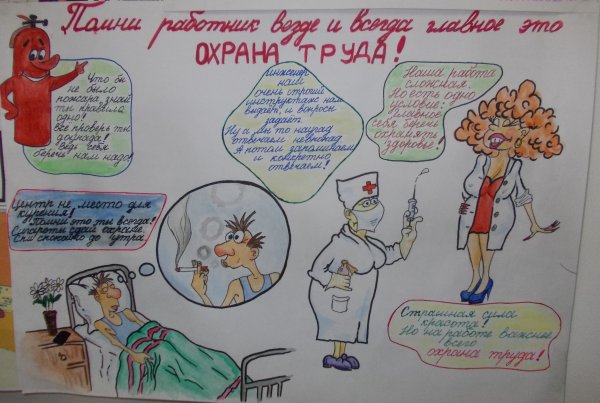 Помни работник везде и всегда главное это
ОХРАНА ТРУДА!
Что бы
не было
пожара, знай
ты правило
одно!
Всё проверь ты
досконала!
Ведь себя
беречь нам надо!
Инженер
наш
очень строгий
инструктаж нам
выдает, и вопросы
задает.
Ну а мы то наугад
отвечаем невпопад
А потом запоминаем
и конкретно
отвечаем!
Наша работа
сложная.
Но есть одно
условие:
Главное
себя умей
охранять
здоровье!
Центр не место для
курения!
Помни это ты всегда!
Сигареты сдай охране.
Спи спокойно до утра.
Страшная сила
красота!
Но на работе важние
всего
охрана труда!